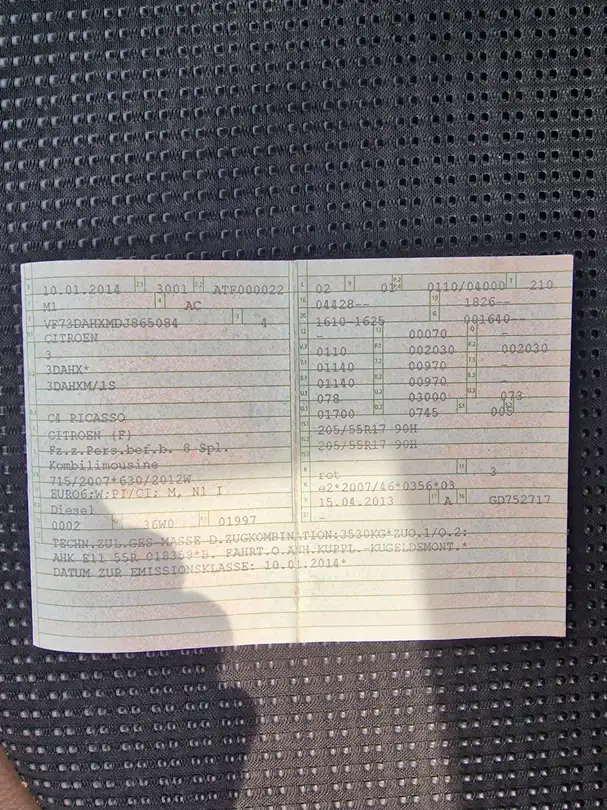 10.01.2014 2.1 3001 2.2 ATF000022
M1 AC
VF73DAHXMDJ865084 3 4
CITROEN
3
3DAHX*
3DAHXM/1S
C4 PICASSO
CITROEN (F)
Fz.z.Pers.bef.b. 8 Spl.
Kombilimousine
715/2007*630/2012W
EURO6;W;PI/CI; M, N1 I
Diesel
0002 36W0 01997
L 02 9 01 P.2 P.4 0110/04000 T 210
18 04428-- 19 1826--
20 1610-1625 G 001640--
12 - 13 00070 Q -
V.7 0110 F.1 002030 F.2 002030
7.1 01140 7.2 00970 7.3 -
8.1 01140 8.2 00970 8.3 -
U.1 078 U.2 03000 U.3 073
O.1 01700 O.2 0745 S.1 005 S.2
15.1 205/55R17 90H
15.2 205/55R17 90H
15.3 -
R rot 11 3
K e2*2007/46*0356*03
6 15.04.2013 17 A 16 GD752717
21 -
TECHN.ZUL.GES-MASSE D.ZUGKOMBINATION:3530KG*ZUO.1/O.2:
AHK E11 55R 018359*B. FAHRT.O.ANH.KUPPL.-KUGELDEMONT.*
DATUM ZUR EMISSIONSKLASSE: 10.01.2014*